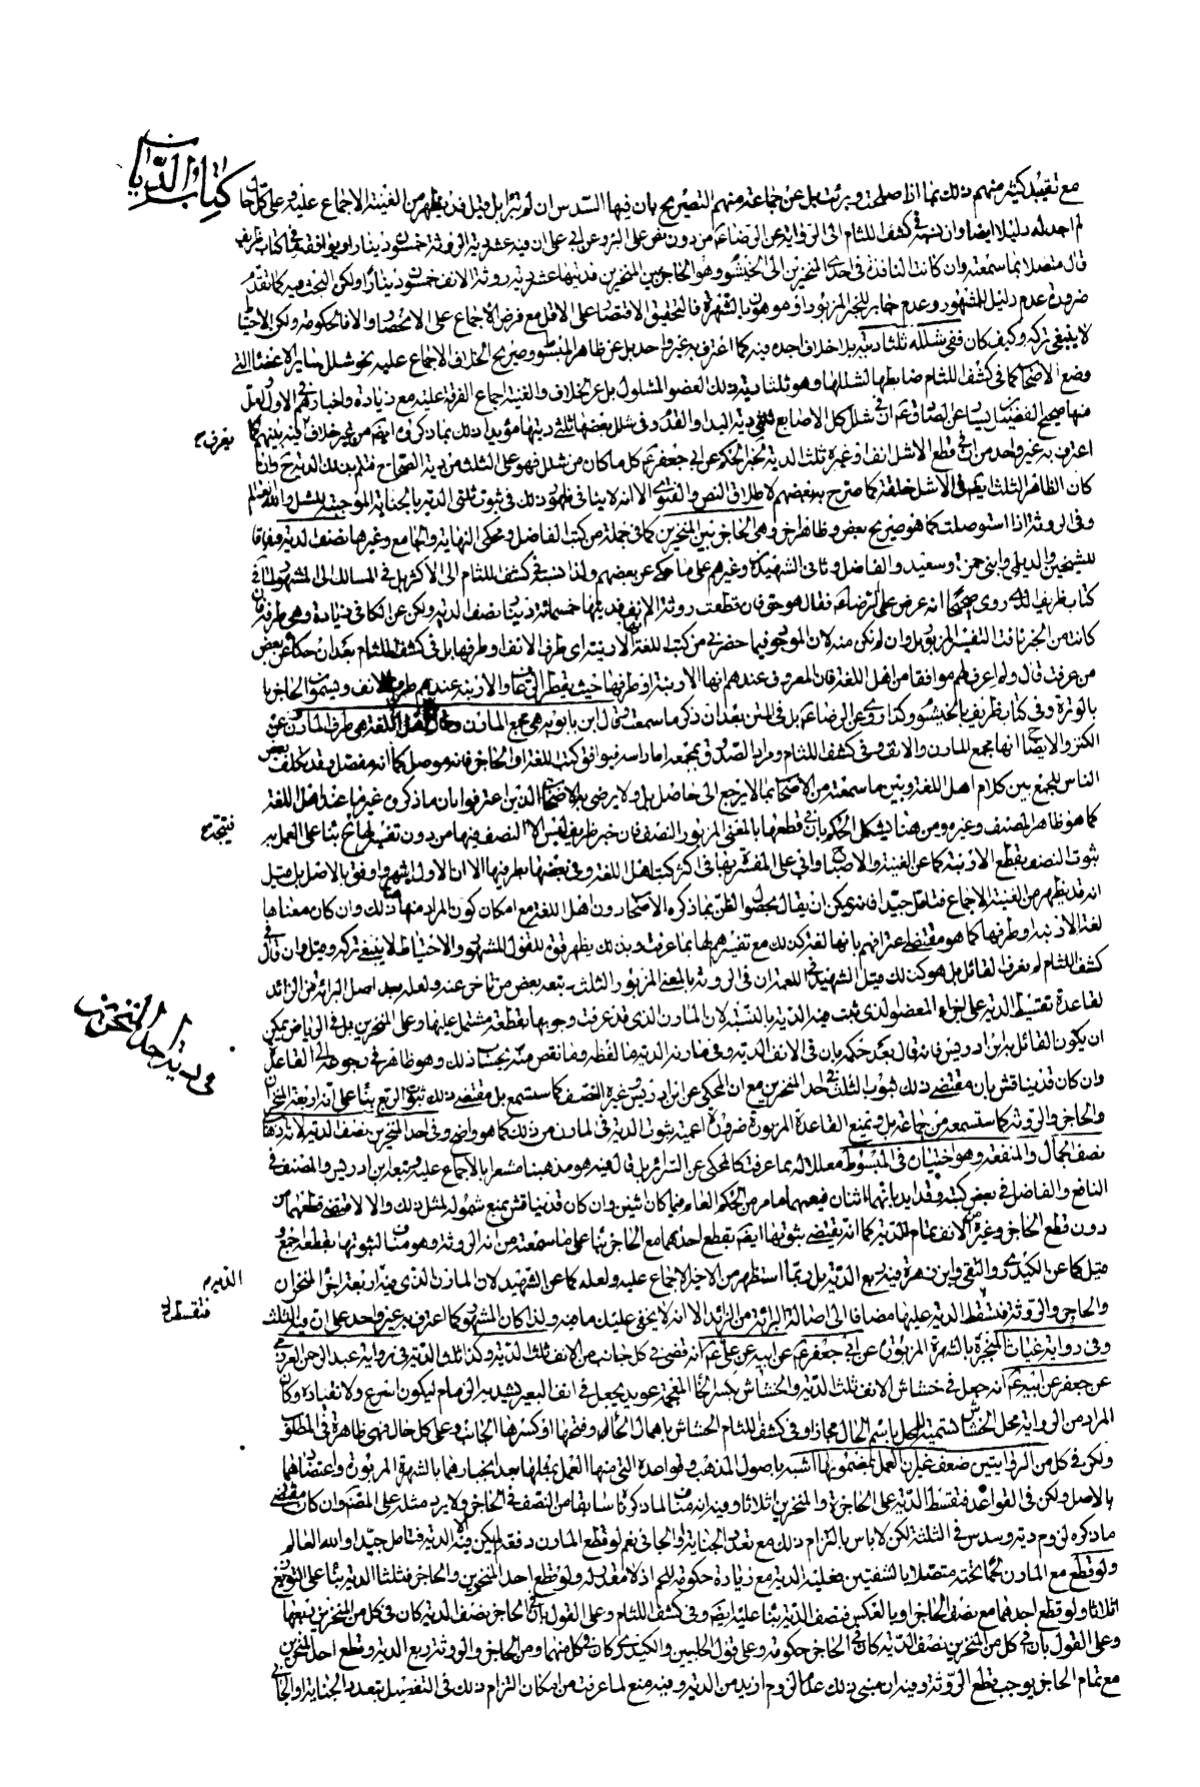 كتاب الديات
مع تقييد كثير منهم ذلك بما اذا صلحت وبرئت بل عن جماعة منهم التصريح بان فيها السدس ان لم تبرأ بل وقيل قد يظهر من الغنية الاجماع عليه وعلى كل حال
لم اجد له دليلا ايضا وان نسبه في كشف اللثام الى الرواية عن الرضا ع من دون نص على البرء وعن ابي علي ان فيه عشر دية الروثة خمسون دينارا ويوافقه ما في كتاب ظريف
قال متصلا بما سمعته وان كانت النافذة في احدى المنخرين الى الخيشوم وهو الحاجز بين المنخرين فديتها عشر دية روثة الانف خمسون دينارا ولكن البحث فيه كما تقدم
ضرورة عدم دليل للمشهور وعدم جابر للخبر المزبور اذ هو موهون بالشهرة فالتحقيق الاقتصار على الاقل مع فرض الاجماع على الانحصار والا فالحكومة ولكن الاحتياط
لا ينبغي تركه وكيف كان ففي شلله ثلثا ديته بلا خلاف اجده فيه كما اعترف به غير واحد بل عن ظاهر المبسوط وصريح الخلاف الاجماع عليه نحو شلل سائر الاعضاء التي
وضع الاصحاب كما في كشف اللثام ضابطها لشللها وهو ثلثا دية ذلك العضو المشلول بل عن الخلاف والغنية اجماع الفرقة عليه مع زيادة واخبارهم في الاول لعل
منها صحيح الفضيل بن يسار عن الصادق ع ان في شلل كل الاصابع ثلثي دية اليد او القدم وفي شلل بعضها ثلثي ديتها مؤيدا ذلك بما ذكروه ايضا من غير خلاف فيه بينهم كما
يعرف
اعترف به غير واحد من ان في قطع الاشل انفا وغيره ثلث الدية لخبر الحكم عن ابي جعفر ع كل ما كان من شلل فهو على الثلث من دية الصحاح متمم بذلك الدية ح وان
كان الظاهر الثلث ايضا في الاشل خلقة كما صرح به بعضهم لاطلاق النص والفتوى الا انه لا ينافي ظهور ذلك في ثبوت ثلثي الدية بالجناية الموجبة للشلل والله العالم
وفي الروثة اذا استوصلت كما هو صريح بعض وظاهر اخر وهي الحاجز بين المنخرين كما في جملة من كتب الفاضل ومحكى النهاية والجامع وغيرها نصف الدية وفاقا
للشيخين والديلمي وابني حمزة وسعيد والفاضل وثاني الشهيدين وغيرهم على ما حكي عن بعضهم ولذا نسبه في كشف اللثام الى الاكثر بل في المسالك الى المشهور لما في
كتاب ظريف الذي روى صحيحا انه عرض على الرضا ع فقال هو حق فان قطعت روثة الانف فديتها خمسمائة دينار نصف الدية ولكن عن الكافي زيادة وهي طرفه فان
كانت من الخبر نافت التفسير المزبور بل وان لم تكن منه لان الموجود فيما حضرني من كتب اللغة انها الارنبة اي طرف الانف او طرفها بل في كشف اللثام بعد ان حكاه عن بعض
من عرفت قال ولم اعرف لهم موافقا من اهل اللغة فان المعروف عندهم انها الارنبة او طرفها حيث يقطر الرعاف والارنبة عندهم طرف الانف ويسمون الحاجز با
بالوترة وفي كتاب ظريف بالخيشوم وكذا روى عن الرضا ع بل في المتن بعد ان ذكر ما سمعت وقال ابن بابويه هي مجمع المارن وقال اهل اللغة هي طرف المارن عن
الكنز والايضاح انها مجمع المارن والانف وفي كشف اللثام ومراد الصدوق بمجمعه اما راسه فيوافق كتب اللغة او الحاجز فانه موصل كما انه مفصل وقد تكلف بعض
الناس للجمع بين كلام اهل اللغة وبين ما سمعته من الاصحاب بما لا يرجع الى حاصل بل ولا يرضى به الاصحاب الذين اعترفوا بان ما ذكروه غير ما عند اهل اللغة
كما هو ظاهر المصنف وغيره ومن هنا قد يشكل الحكم بان في قطعها بالمعنى المزبور النصف فان خبر ظريف ليس الا النصف فيها من دون تفسير لها
فيتجه
ح بناء على العمل به
ثبوت النصف بقطع الارنبة كما عن الغنية والاصباح وافي على المفسر بها في اكثر كتب اهل اللغة وفي بعضها بطرفها الا ان الاول اشهر واوفق بالاصل بل قيل
انه قد يظهر من الغنية الاجماع فتامل جيدا فانه يمكن ان يقال بحصول الظن بما ذكره الاصحاب دون اهل اللغة مع امكان كون المراد منها هنا ذلك وان كان معناها
لغة الارنبة او طرفها كما هو مقتضى اعترافهم بانها لغة كذلك مع تفسيرهم لها بما عرفت وبذلك يظهر قوة للقول المشهور والاحتياط لا ينبغي تركه وقيل وان قال في
كشف اللثام لم نعرف القائل بل هو كذلك قبل الشهيد في اللمعة ان في الروثة بالمعنى المزبور الثلث وتبعه بعض من تاخر عنه ولعله بعد اصل البرائة من الزائد
لقاعدة تقسيط الدية على اجزاء العضو الذي ثبت فيه الدية بالنسبة لان المارن الذي قد عرفت وجوبها بقطعه مشتمل عليها وعلى المنخرين بل في الرياض يمكن
في دية احد المنخرين
ان يكون القائل به ابن ادريس فانه قال بعد حكمه بان في الانف الدية وفي مارنه الدية ما لفظه وما نقص منه بحساب ذلك وهو ظاهر في رجوعه الى القاعدة
وان كان قد يناقش بان مقتضى ذلك ثبوت الثلث في احد المنخرين مع ان المحكي عن ابن ادريس غيره النصف كما ستسمع بل مقتضى ذلك ثبوت الربع بناء على انه اربعة المنخران
والحاجز والروثة كما ستسمعه من جماعة بل وتمنع القاعدة المزبورة ضرورة اعمية ثبوت الدية في المارن من ذلك كما هو واضح وفي احد المنخرين نصف الدية لانه ذهاب
نصف الجمال والمنفعة وهو اختيار في المبسوط معللا له بما عرفت كالمحكي عن السرائر بل قال فيه هو مذهبنا مشعرا بالاجماع عليه وتبعه ابن ادريس والمصنف في
النافع والفاضل في بعض كتبه وقد ايد بانهما اثنان فيعمهما ما مر من الحكم العام فيما كان اثنين وان كان قد يناقش بمنع شموله لمثل ذلك والا لاقتضى قطعهما من
دون قطع الحاجز وغيره من الانف تمام الدية كما انه يقتضي ثبوتها ايضا بقطع احدهما مع الحاجز بناء على ما سمعته من انه الروثة وهو مناف لثبوتها بقطعه اجمع و
قيل كما عن الكيدري والتقي وابن زهرة فيه ربع الدية بل ربما استظهر من الاخير الاجماع عليه ولعله كما عن الشهيد لان المارن الذي فيه الدية اربعة اجزاء المنخران
الدية
فتقسط
والحاجز والروثة فتقسط الدية عليها مضافا الى اصالة البرائة من الزائد الا انه لا يخفى عليك ما فيه ولذا كان المشهور كما اعترف به غير واحد على ان فيه الثلث
وفي رواية غياث المنجبرة بالشهرة المزبورة عن ابي جعفر ع عن ابيه عن علي ع انه قضى في كل جانب من الانف ثلث الدية وكذا ثلث الدية في رواية عبد الرحمن العزرمي
عن جعفر عن ابيه ع انه جعل في خشاش الانف ثلث الدية والخشاش بكسر الخاء المعجمة عويد يجعل في انف البعير يشد به الزمام ليكون اسرع ولانقياده وكان
المراد من الرواية محل الخشاش تسمية للمحل باسم الحال مجازا وفي كشف اللثام الحشاش باهمال الحاء وفتحها او كسرها الجانب وعلى كل حال فهي ظاهرة في المطلوب
ولكن في كل من الروايتين ضعف غير ان العمل بمضمونها اشبه باصول المذهب وقواعده التي منها العمل بمثلها بعد انجبارهما بالشهرة المزبورة واعتضادهما
بالاصل ولكن في القواعد فتقسط الدية على الحاجزة والمنخرين اثلاثا وفيه انه مناف لما ذكره سابقا من النصف في الحاجز ولا يرد مثله على المصنف وان كان مقتضى
ما ذكره لزوم دية وسدس في الثلثة لكن لا باس بالتزام ذلك مع تعدد الجناية او الجاني نعم لو قطع المارن دفعة لم يكن فيه الا الدية فتامل جيدا والله العالم
ولو قطع مع المارن لحما تحته متصلا بالشفتين فعليه الدية مع زيادة حكومة للحم اذ لا مقدر له ولو قطع احد المنخرين والحاجز فثلثا الدية بناء على التوزيع
اثلاثا ولو قطع احدهما مع بعض الحاجز او بالعكس فنصف الدية بناء عليه ايضا وفي كشف اللثام وعلى القول بان في الحاجز نصف الدية كان في كل من المنخرين ربعها
وعلى القول بان في كل من المنخرين نصف الدية كان في الحاجز حكومة وعلى قول الحلبيين والكيدري كان في كل منهما ومن الحاجز والروثة ربع الدية وقطع احد المنخرين
مع تمام الحاجز يوجب قطع الروثة وفيه ان مبنى ذلك على لزوم ازيد من الدية وفيه منع لما عرفت من امكان التزام ذلك في التفصيل بتعدد الجناية او الجاني